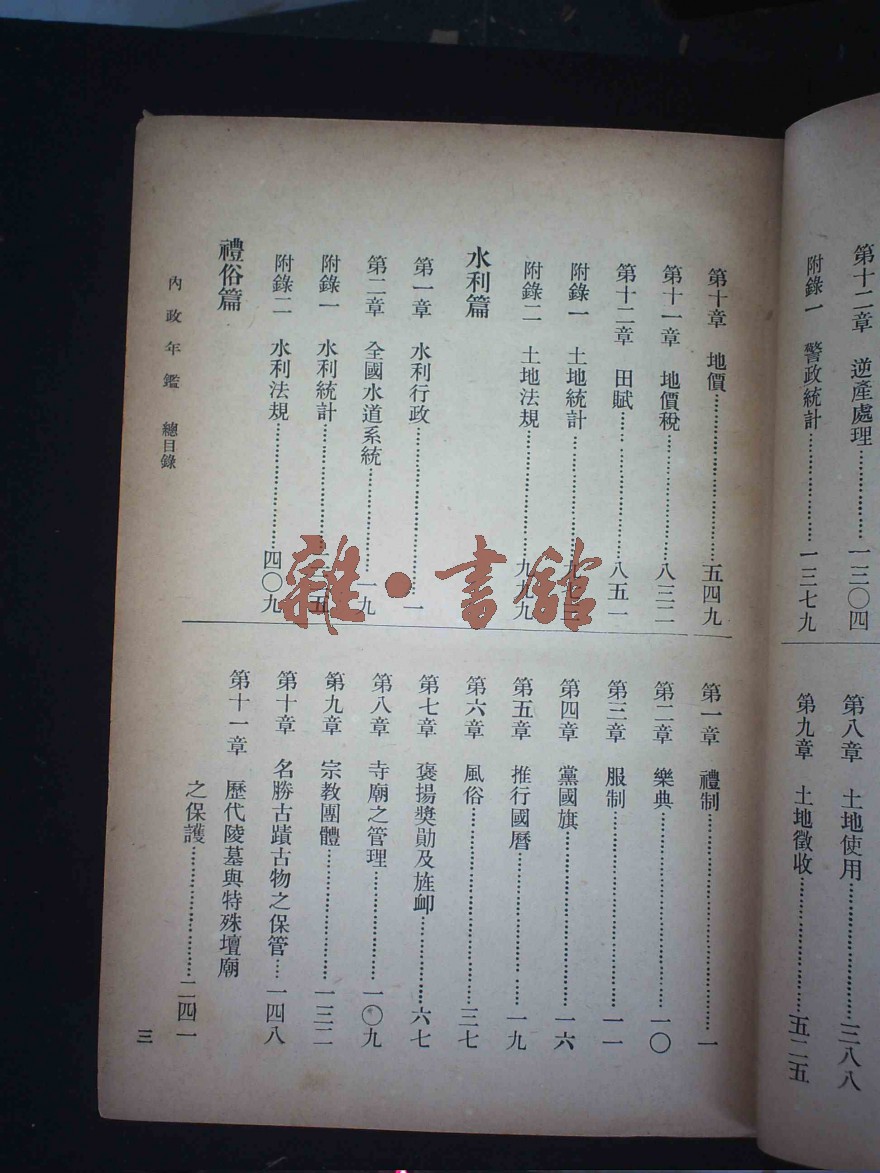 第十二章　逆產處理……一三〇四
附錄一　警政統計……一三七九
第八章　土地使用……三八八
第九章　土地徵收……五二五
第十章　地價……五四九
第十一章　地價稅……八三二
第十二章　田賦……八五一
附錄一　土地統計……
附錄二　土地法規……九九九
水利篇
第一章　水利行政……一
第二章　全國水道系統……一九
附錄一　水利統計……
附錄二　水利法規……四〇九
禮俗篇
第一章　禮制……一
第二章　樂典……一〇
第三章　服制……一一
第四章　黨國旗……一六
第五章　推行國曆……一九
第六章　風俗……三七
第七章　褒揚獎勛及旌卹……六七
第八章　寺廟之管理……一〇九
第九章　宗教團體……一三二
第十章　名勝古蹟古物之保管……一四八
第十一章　歷代陵墓與特殊壇廟
之保護……二四一
內政年鑑　總目錄
三
雜·書館